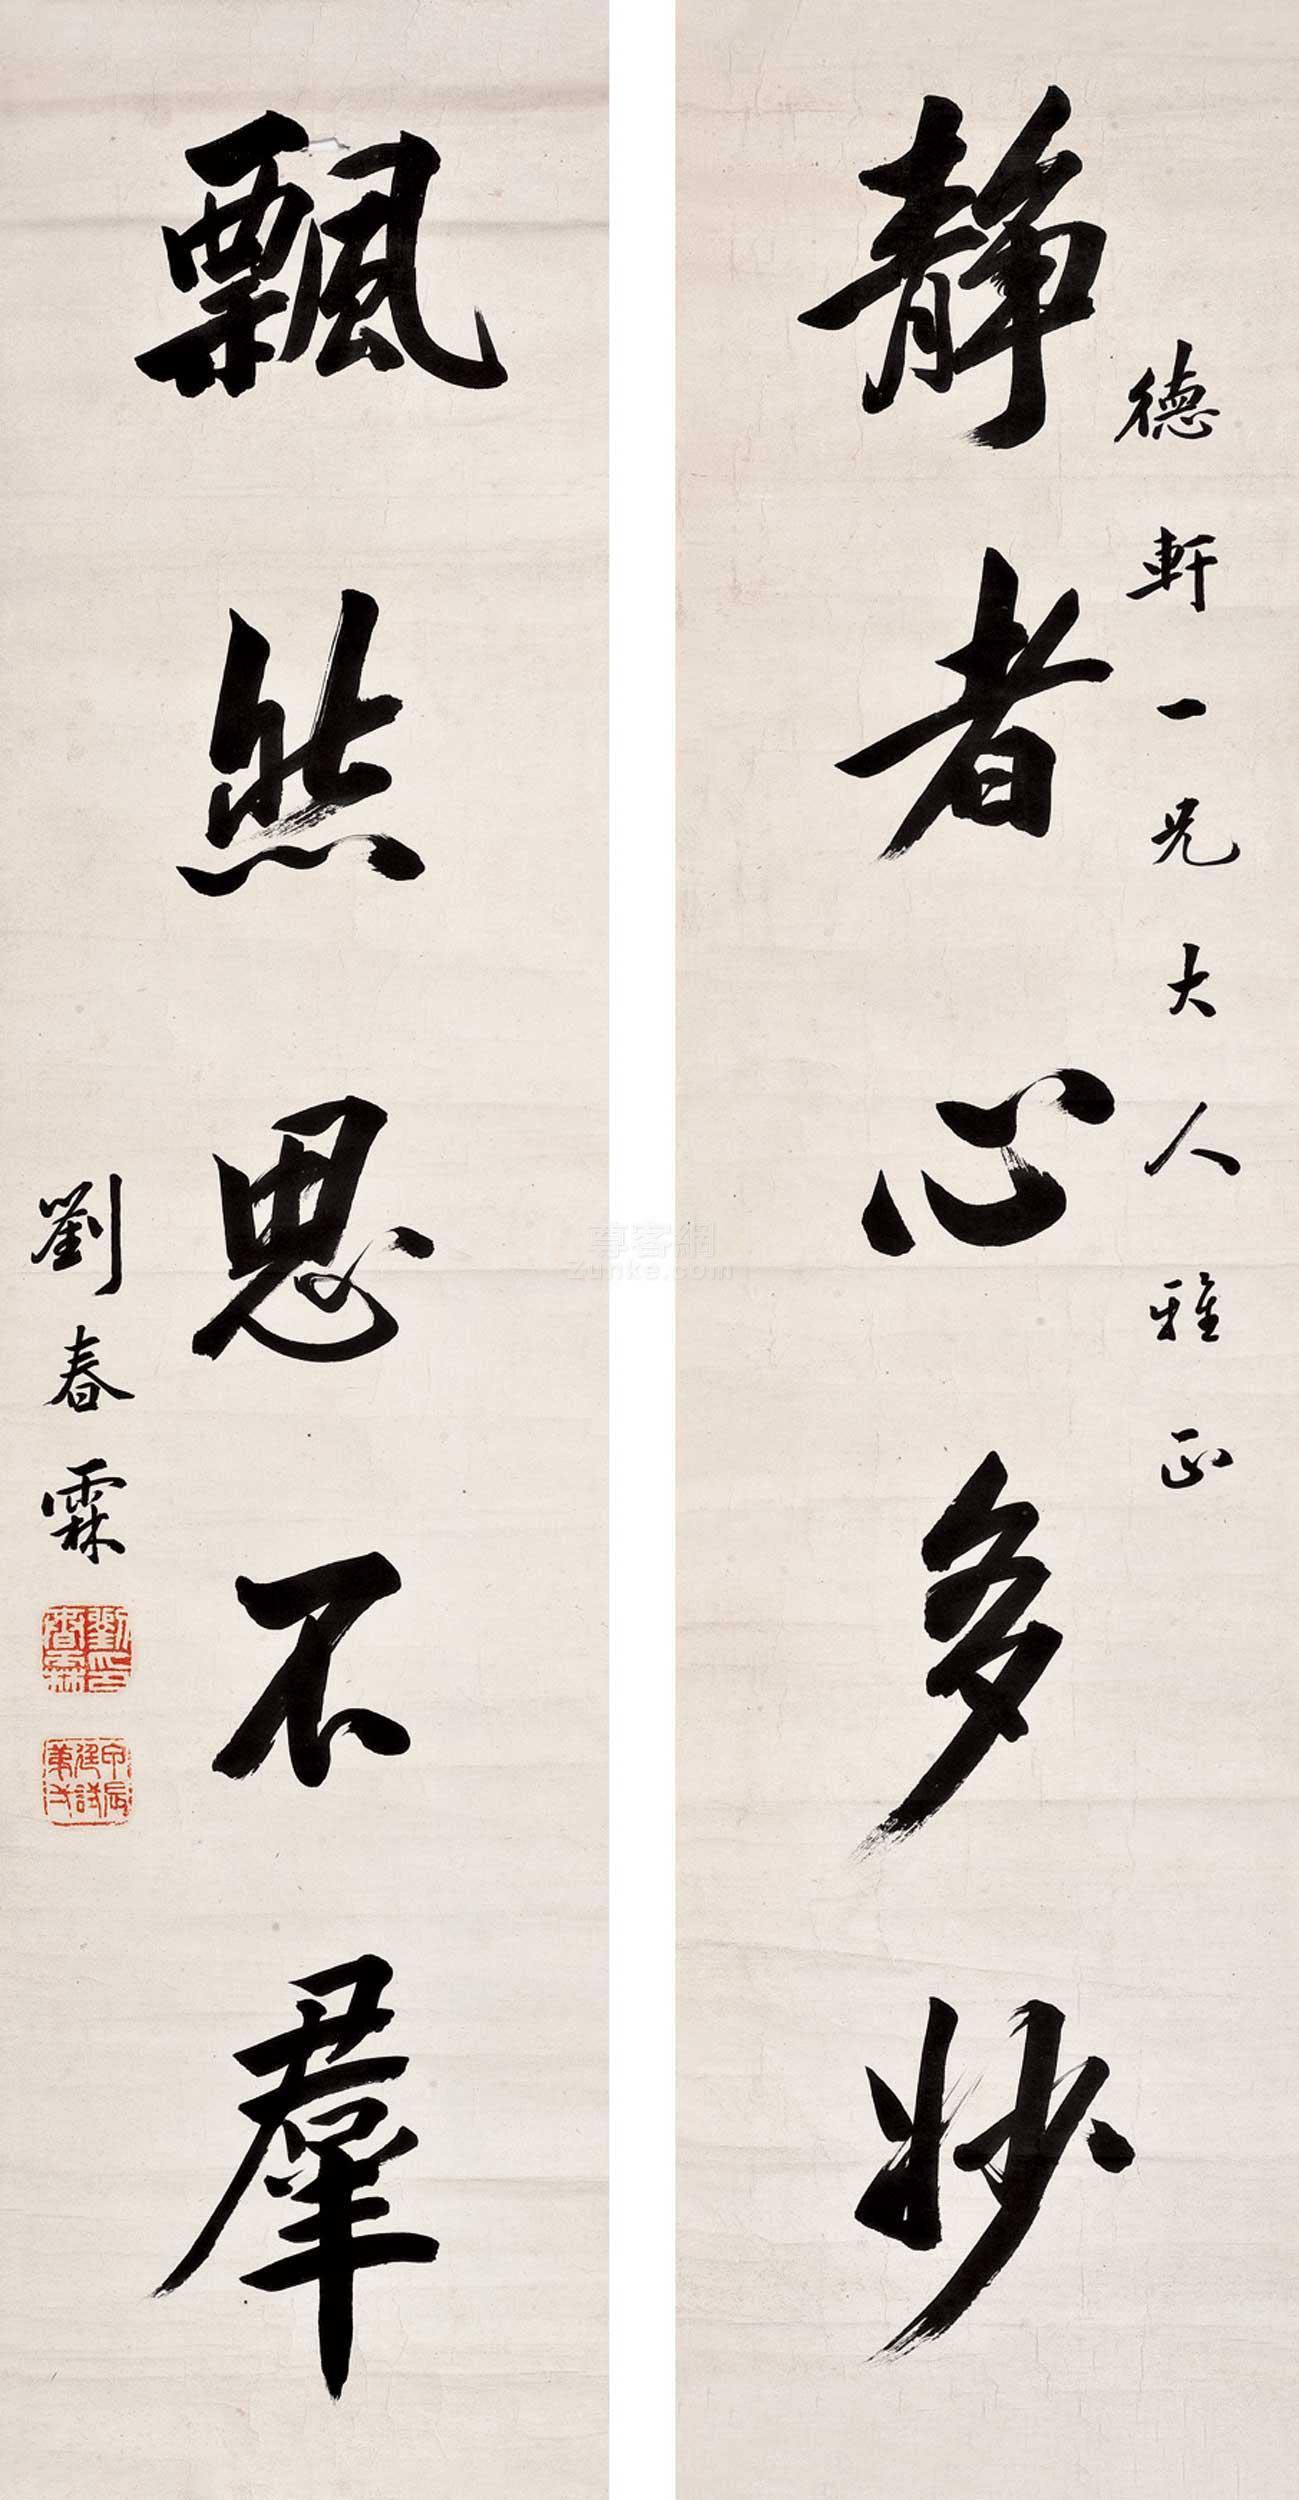 德軒一兄大人雅正
靜者心多妙
飄然思不羣
劉春霖
劉春霖印
甲辰廷試第一
尊客網
Zunke.com